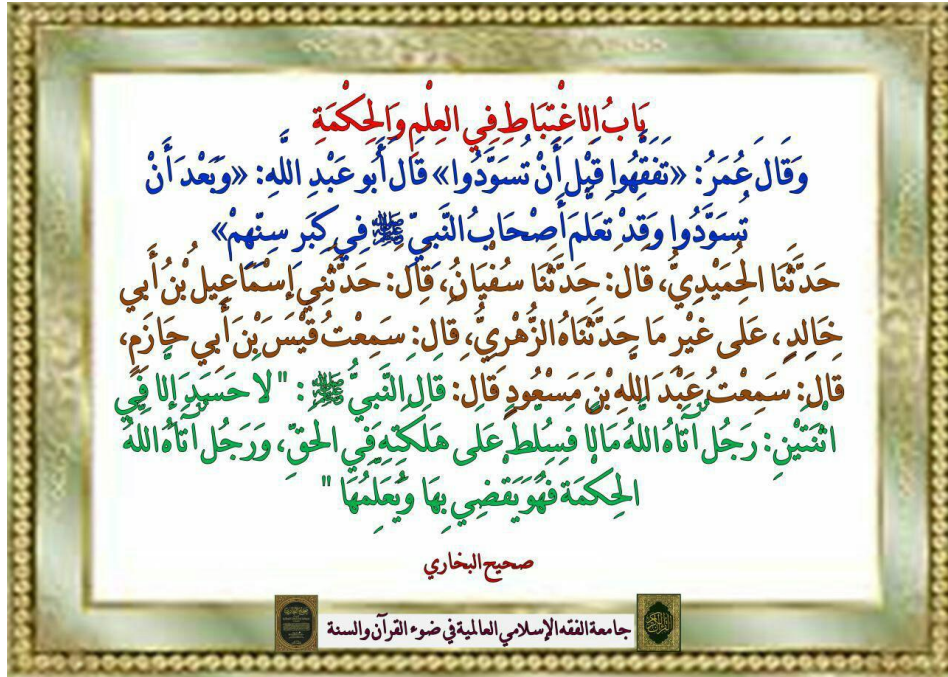 بَابُ الِاغْتِبَاطِ فِي العِلْمِ وَالحِكْمَةِ
وَقَالَ عُمَرُ: «تَفَقَّهُوا قَبْلَ أَنْ تُسَوَّدُوا» قَالَ أَبُو عَبْدِ اللَّهِ: «وَبَعْدَ أَنْ
تُسَوَّدُوا وَقَدْ تَعَلَّمَ أَصْحَابُ النَّبِيِّ ﷺ فِي كِبَرِ سِنِّهِمْ»
حَدَّثَنَا الحُمَيْدِيُّ، قَالَ: حَدَّثَنَا سُفْيَانُ، قَالَ: حَدَّثَنِي إِسْمَاعِيلُ بْنُ أَبِي
خَالِدٍ، عَلَى غَيْرِ مَا حَدَّثَنَاهُ الزُّهْرِيُّ، قَالَ: سَمِعْتُ قَيْسَ بْنَ أَبِي حَازِمٍ،
قَالَ: سَمِعْتُ عَبْدَ اللهِ بْنَ مَسْعُودٍ قَالَ: قَالَ النَّبِيُّ ﷺ : " لَا حَسَدَ إِلَّا فِي
اثْنَتَيْنِ: رَجُلٌ آتَاهُ اللهُ مَالًا فَسُلِّطَ عَلَى هَلَكَتِهِ فِي الحَقِّ، وَرَجُلٌ آتَاهُ اللهُ
الحِكْمَةَ فَهُوَ يَقْضِي بِهَا وَيُعَلِّمُهَا "
صحيح البخاري
جامعة الفقه الإسلامي العالمية في ضوء القرآن والسنة